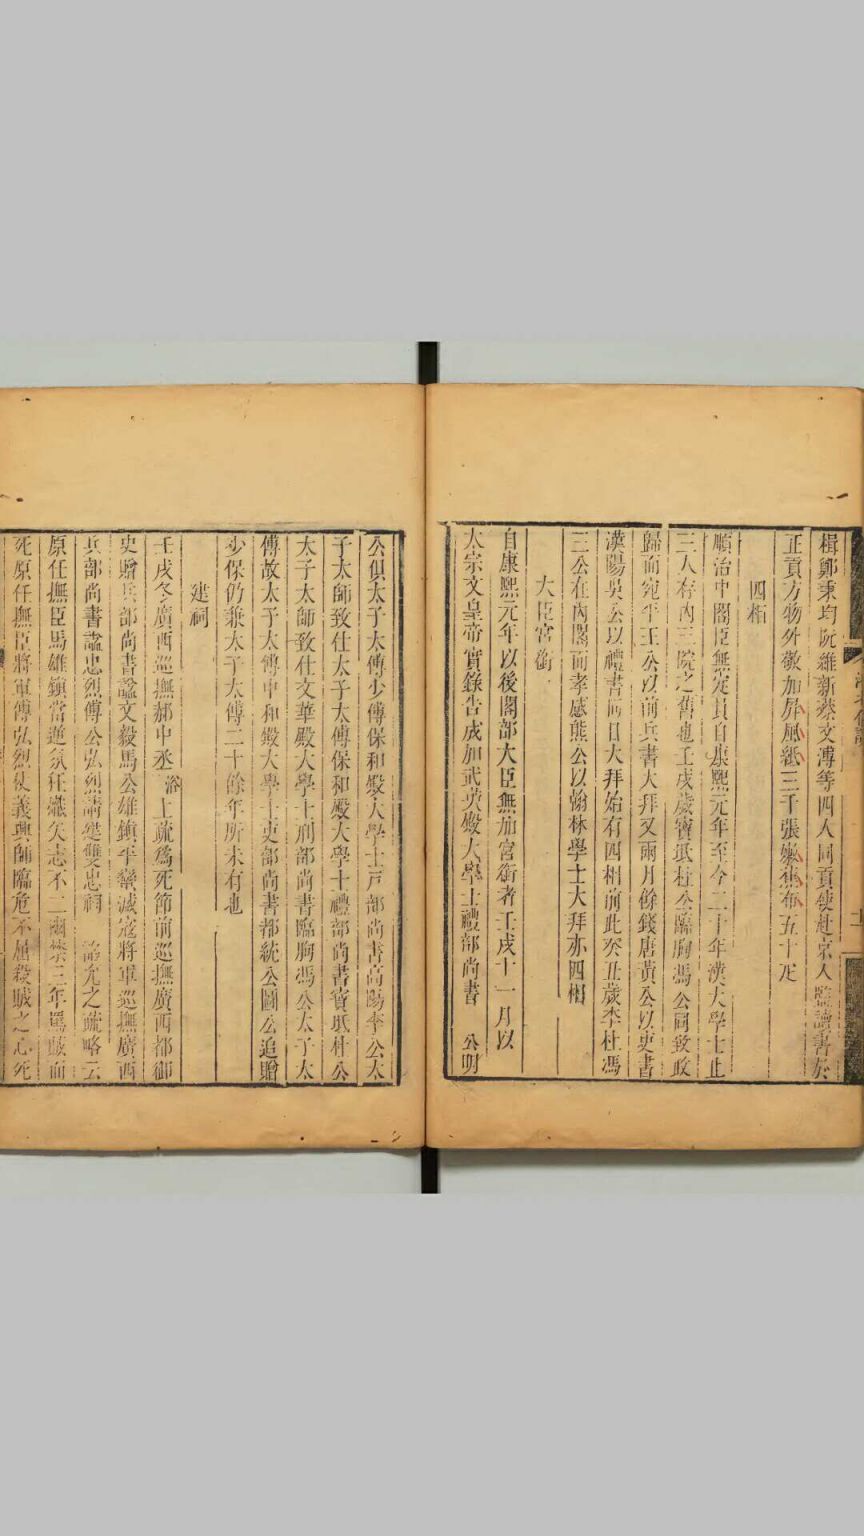 楫鄭秉均阮維新蔡文溥等四人同貢使赴京入監讀書於
正貢方物外敬加屏風紙三千張嫩蕉布五十疋
四相
順治中閣臣無定員自康熙元年至今二十年漢大學士止
三人存內三院之舊也壬戌歲寶坻杜公臨朐馮公同致政
歸而宛平王公以前兵書大拜又兩月餘錢唐黃公以吏書
漢陽吳公以禮書同日大拜始有四相前此癸丑歲李杜馮
三公在內閣而孝感熊公以翰林學士大拜亦四相
大臣宮銜
自康熙元年以後閣部大臣無加宮銜者壬戌十一月以
太宗文皇帝實錄告成加武英殿大學士禮部尚書 公明
公俱太子太傅少傅保和殿大學士戶部尚書高陽李公太
子太師致仕太子太傅保和殿大學士禮部尚書寶坻杜公
太子太師致仕文華殿大學士刑部尚書臨朐馮公太子太
傅故太子太傅中和殿大學士吏部尚書都統公圖公追贈
少保仍兼太子太傅二十餘年所未有也
建祠
壬戌冬廣西巡撫郝中丞浴上疏為死節前巡撫廣西都御
史贈兵部尚書諡文毅馬公雄鎮平蠻滅寇將軍巡撫廣西
兵部尚書諡忠烈傅公弘烈請建雙忠祠 詔允之疏略云
原任撫臣馬雄鎮當逆氛狂熾矢志不二幽禁三年罵賊而
死原任撫臣將軍傅弘烈仗義興師臨危不屈殺賊之心死